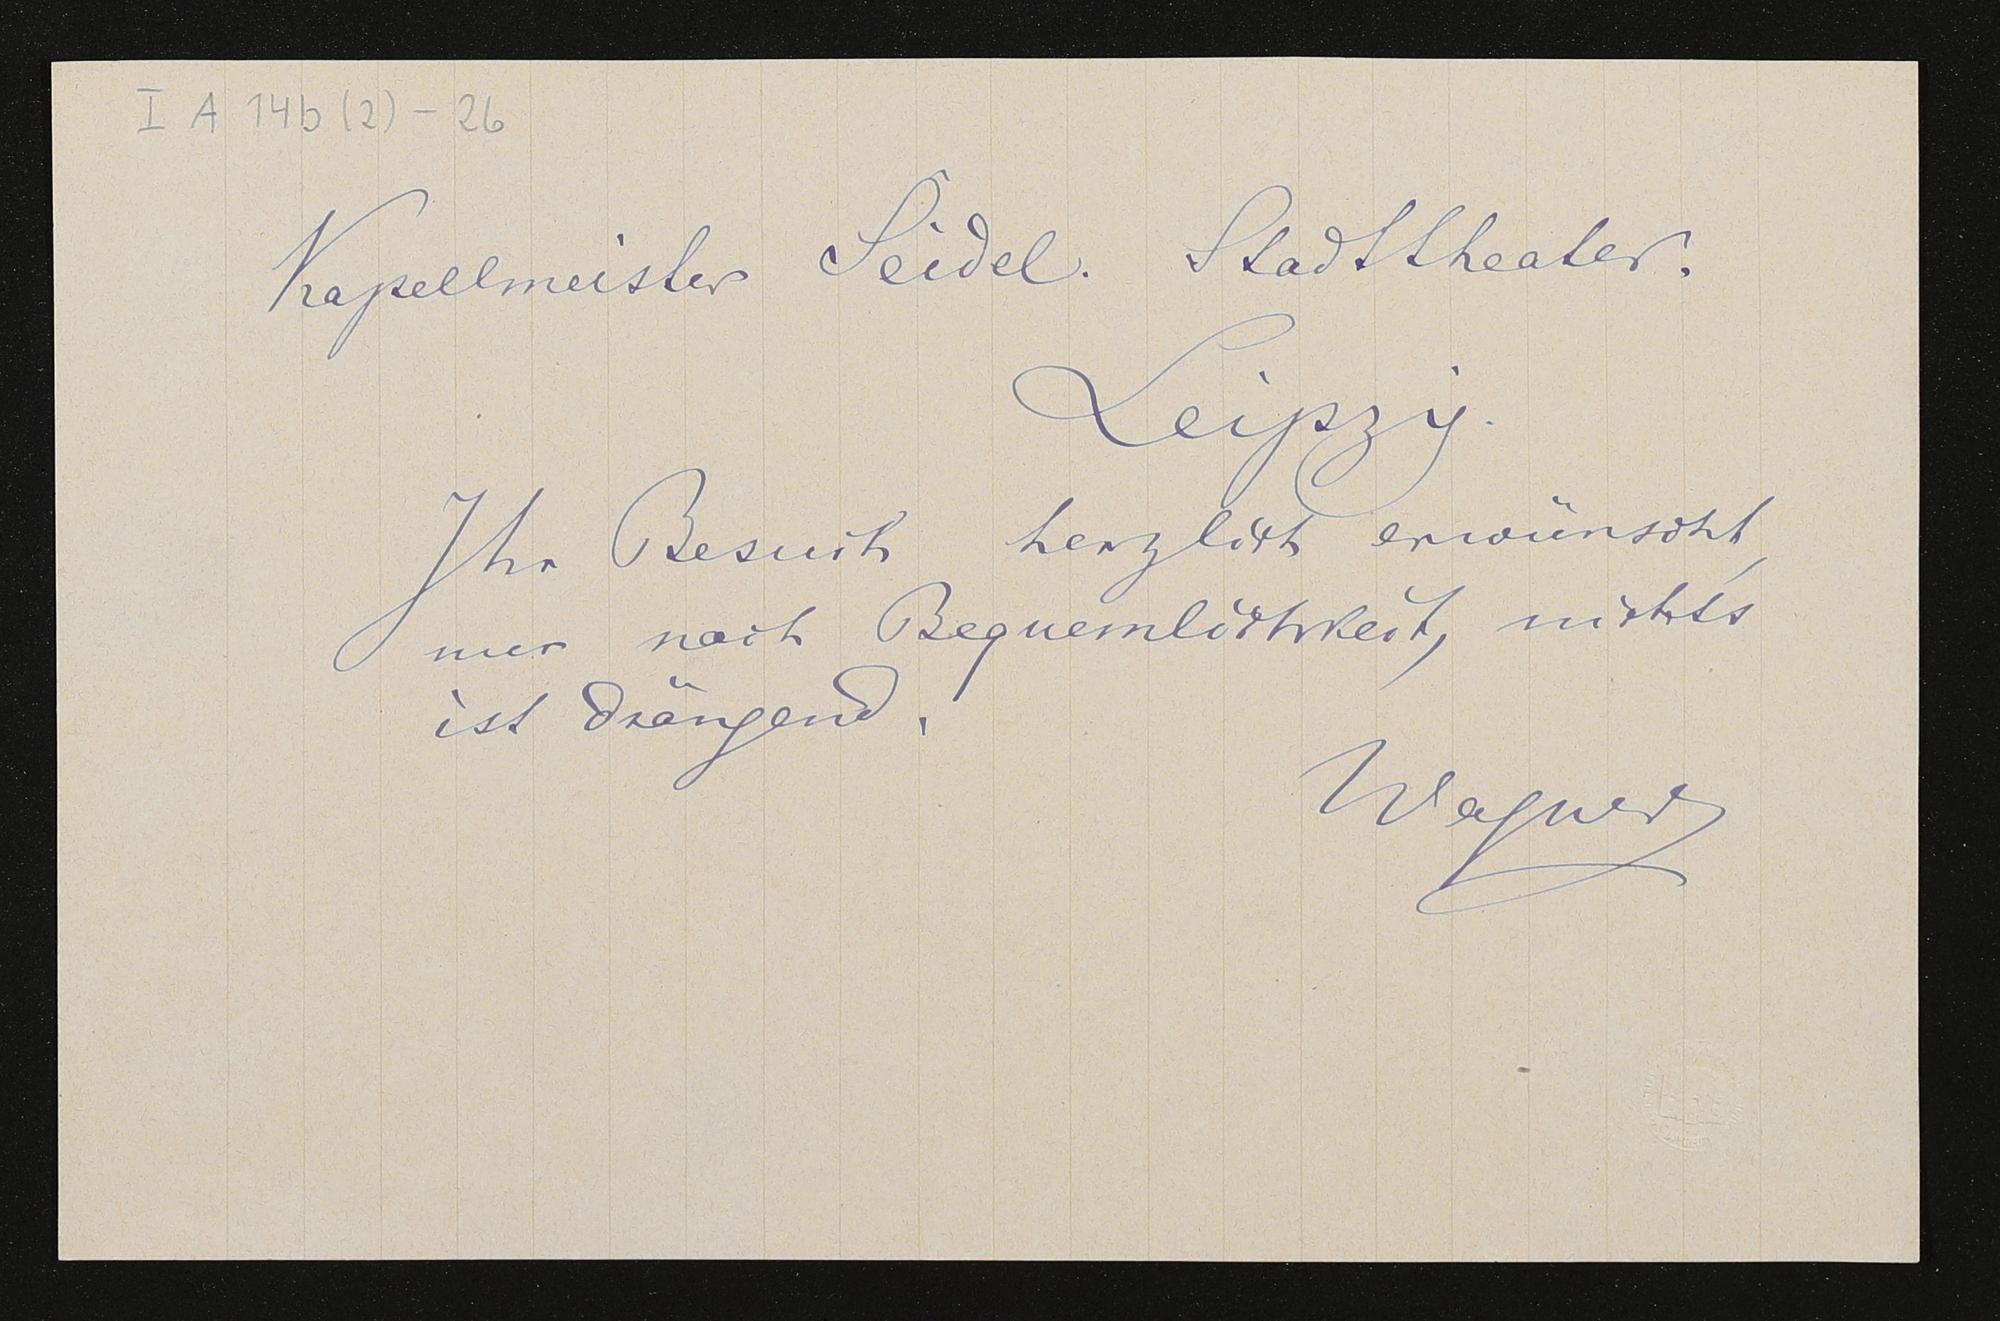 I A 14b (2) - 26
Kapellmeister Seidel. Stadttheater.
Leipzig.
Ihr Besuch herzlich erwünscht,
nur nach Bequemlichkeit, nichts
ist drängend.
Wagner